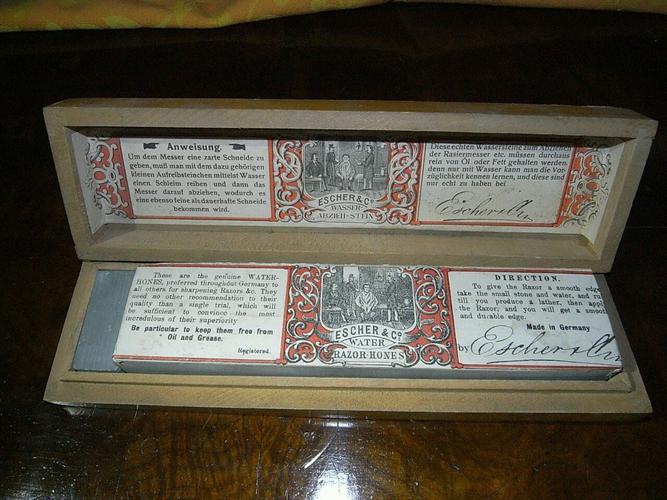 Anweisung.
Um dem Messer eine zarte Schneide zu
geben, muß man mit dem dazu gehörigen
kleinen Aufreibsteinchen mittelst Wasser
einen Schleim reiben und dann das
Messer darauf abziehen, wodurch es
eine ebenso feine als dauerhafte Schneide
bekommen wird.
ESCHER & Co
WASSER-
ABZIEH-STEIN
Diese echten Wassersteine zum Abziehen
der Rasiermesser etc. müssen durchaus
rein von Öl oder Fett gehalten werden,
denn nur mit Wasser kann man die Vor-
züglichkeit kennen lernen, und diese sind
nur echt zu haben bei
Escher & Co
These are the genuine WATER-
HONES, preferred throughout Germany to
all others for sharpening Razors &c. They
need no other recommendation to their
quality than a single trial, which will
be sufficient to convince the most
incredulous of their superiority
Be particular to keep them free from
Oil and Grease.
Registered.
ESCHER & Co
WATER
RAZOR-HONES
DIRECTION.
To give the Razor a smooth edge
take the small stone and water, and ru
till you produce a lather, then appl
the Razor; and you will get a smooth
and durable edge.
Made in Germany
by Escher & Co